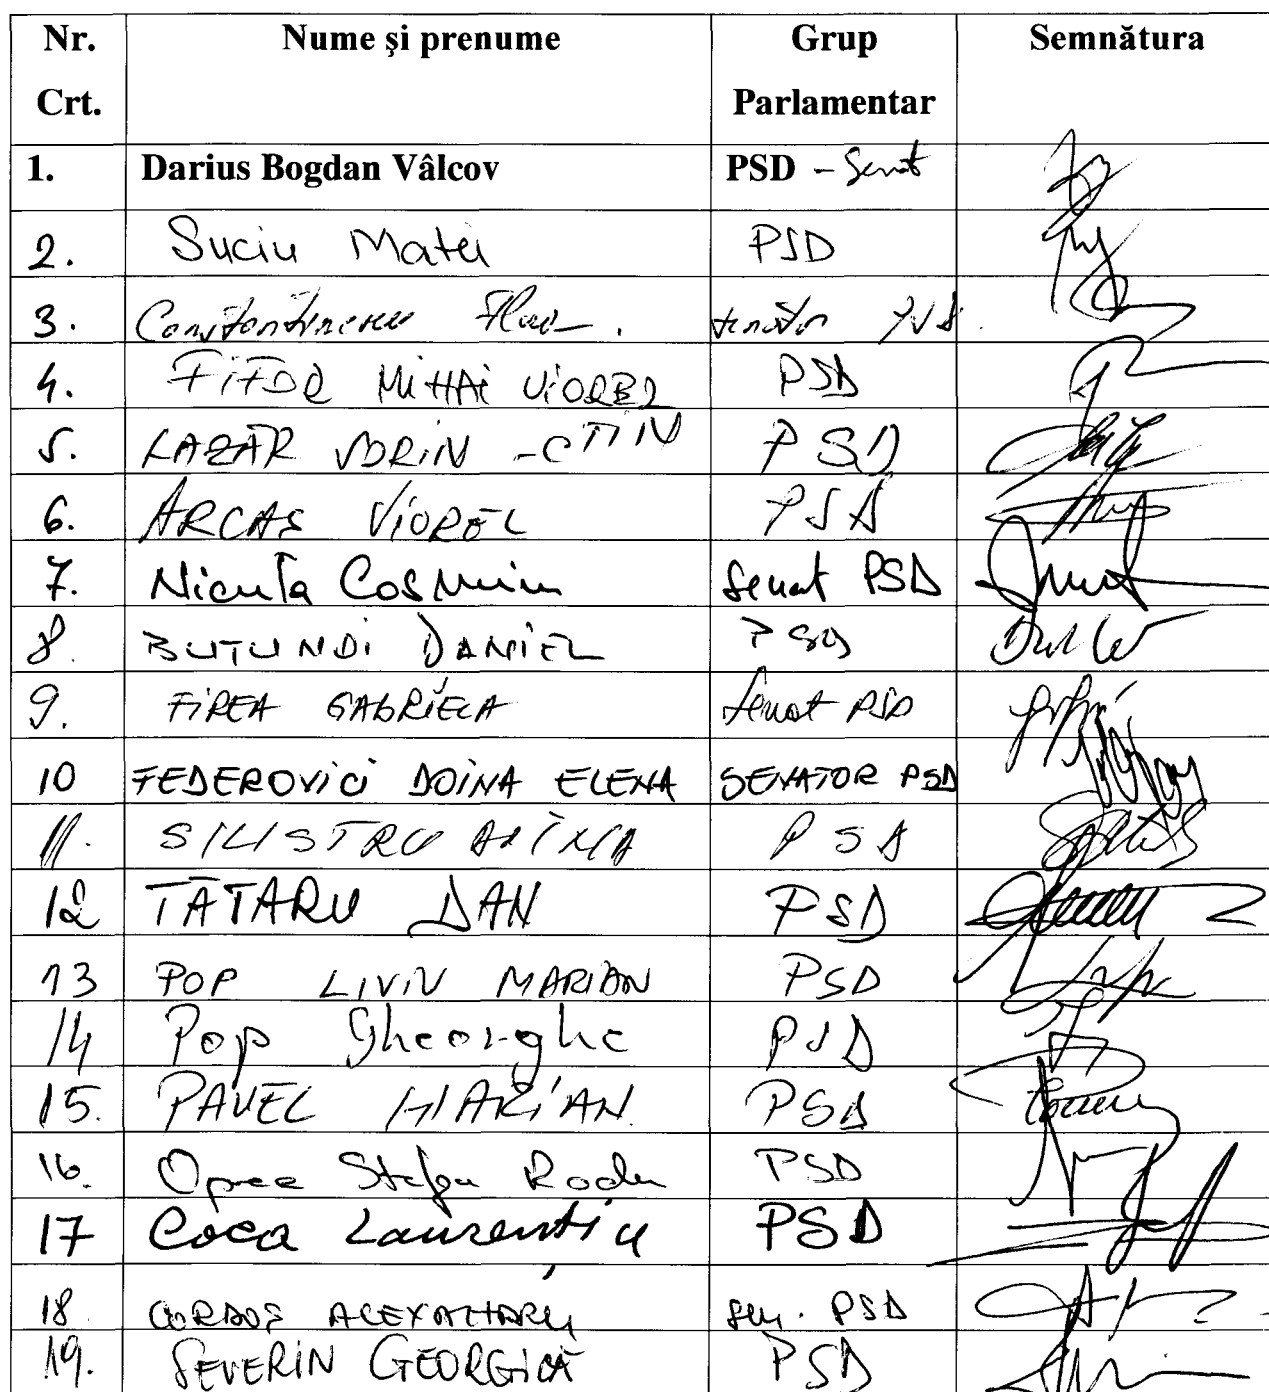 Nr. Crt. Nume și prenume Grup Parlamentar Semnătura
1. Darius Bogdan Vâlcov PSD - Senat
2. Suciu Matei PSD
3. Constantinescu senator
4. FIFOR MIHAI VIOREL PSD
5. LAZĂR SORIN -CTIN PSD
6. ARCAȘ VIOREL PSD
7. Nicula Cosmin Senat PSD
8. BUTUNOI DANIEL PSD
9. FIREA GABRIELA Senat PSD
10 FEDEROVICI DOINA ELENA SENATOR PSD
11. SILISTRU DOINA PSD
12 TĂTARU DAN PSD
13 POP LIVIU MARIAN PSD
14 Pop Gheorghe PSD
15. PAVEL MARIAN PSD
16. Oprea Stefan Radu PSD
17 Coca Laurențiu PSD
18. CORDOȘ ALEXANDRU sen. PSD
19. SEVERIN GEORGICĂ PSD